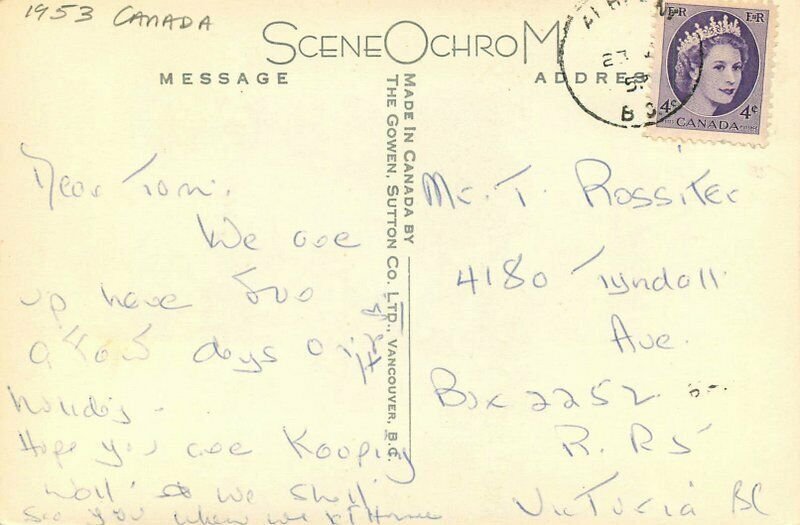 1953 CANADA
SCENEOCHROM
MESSAGE
ADDRES
Dear Tom.
We are
up here for
a few days on
holiday.
Hope you are keeping
well & we shall
see you when we home
MADE IN CANADA BY
THE GOWEN. SUTTON CO. LTD., VANCOUVER, B.C.
EIIR EIIR
4¢ 4¢
CANADA
23
B.C.
Mr. T. Rossiter
4180 Tyndall
Ave.
Box 2252
R. R 5
Victoria BC